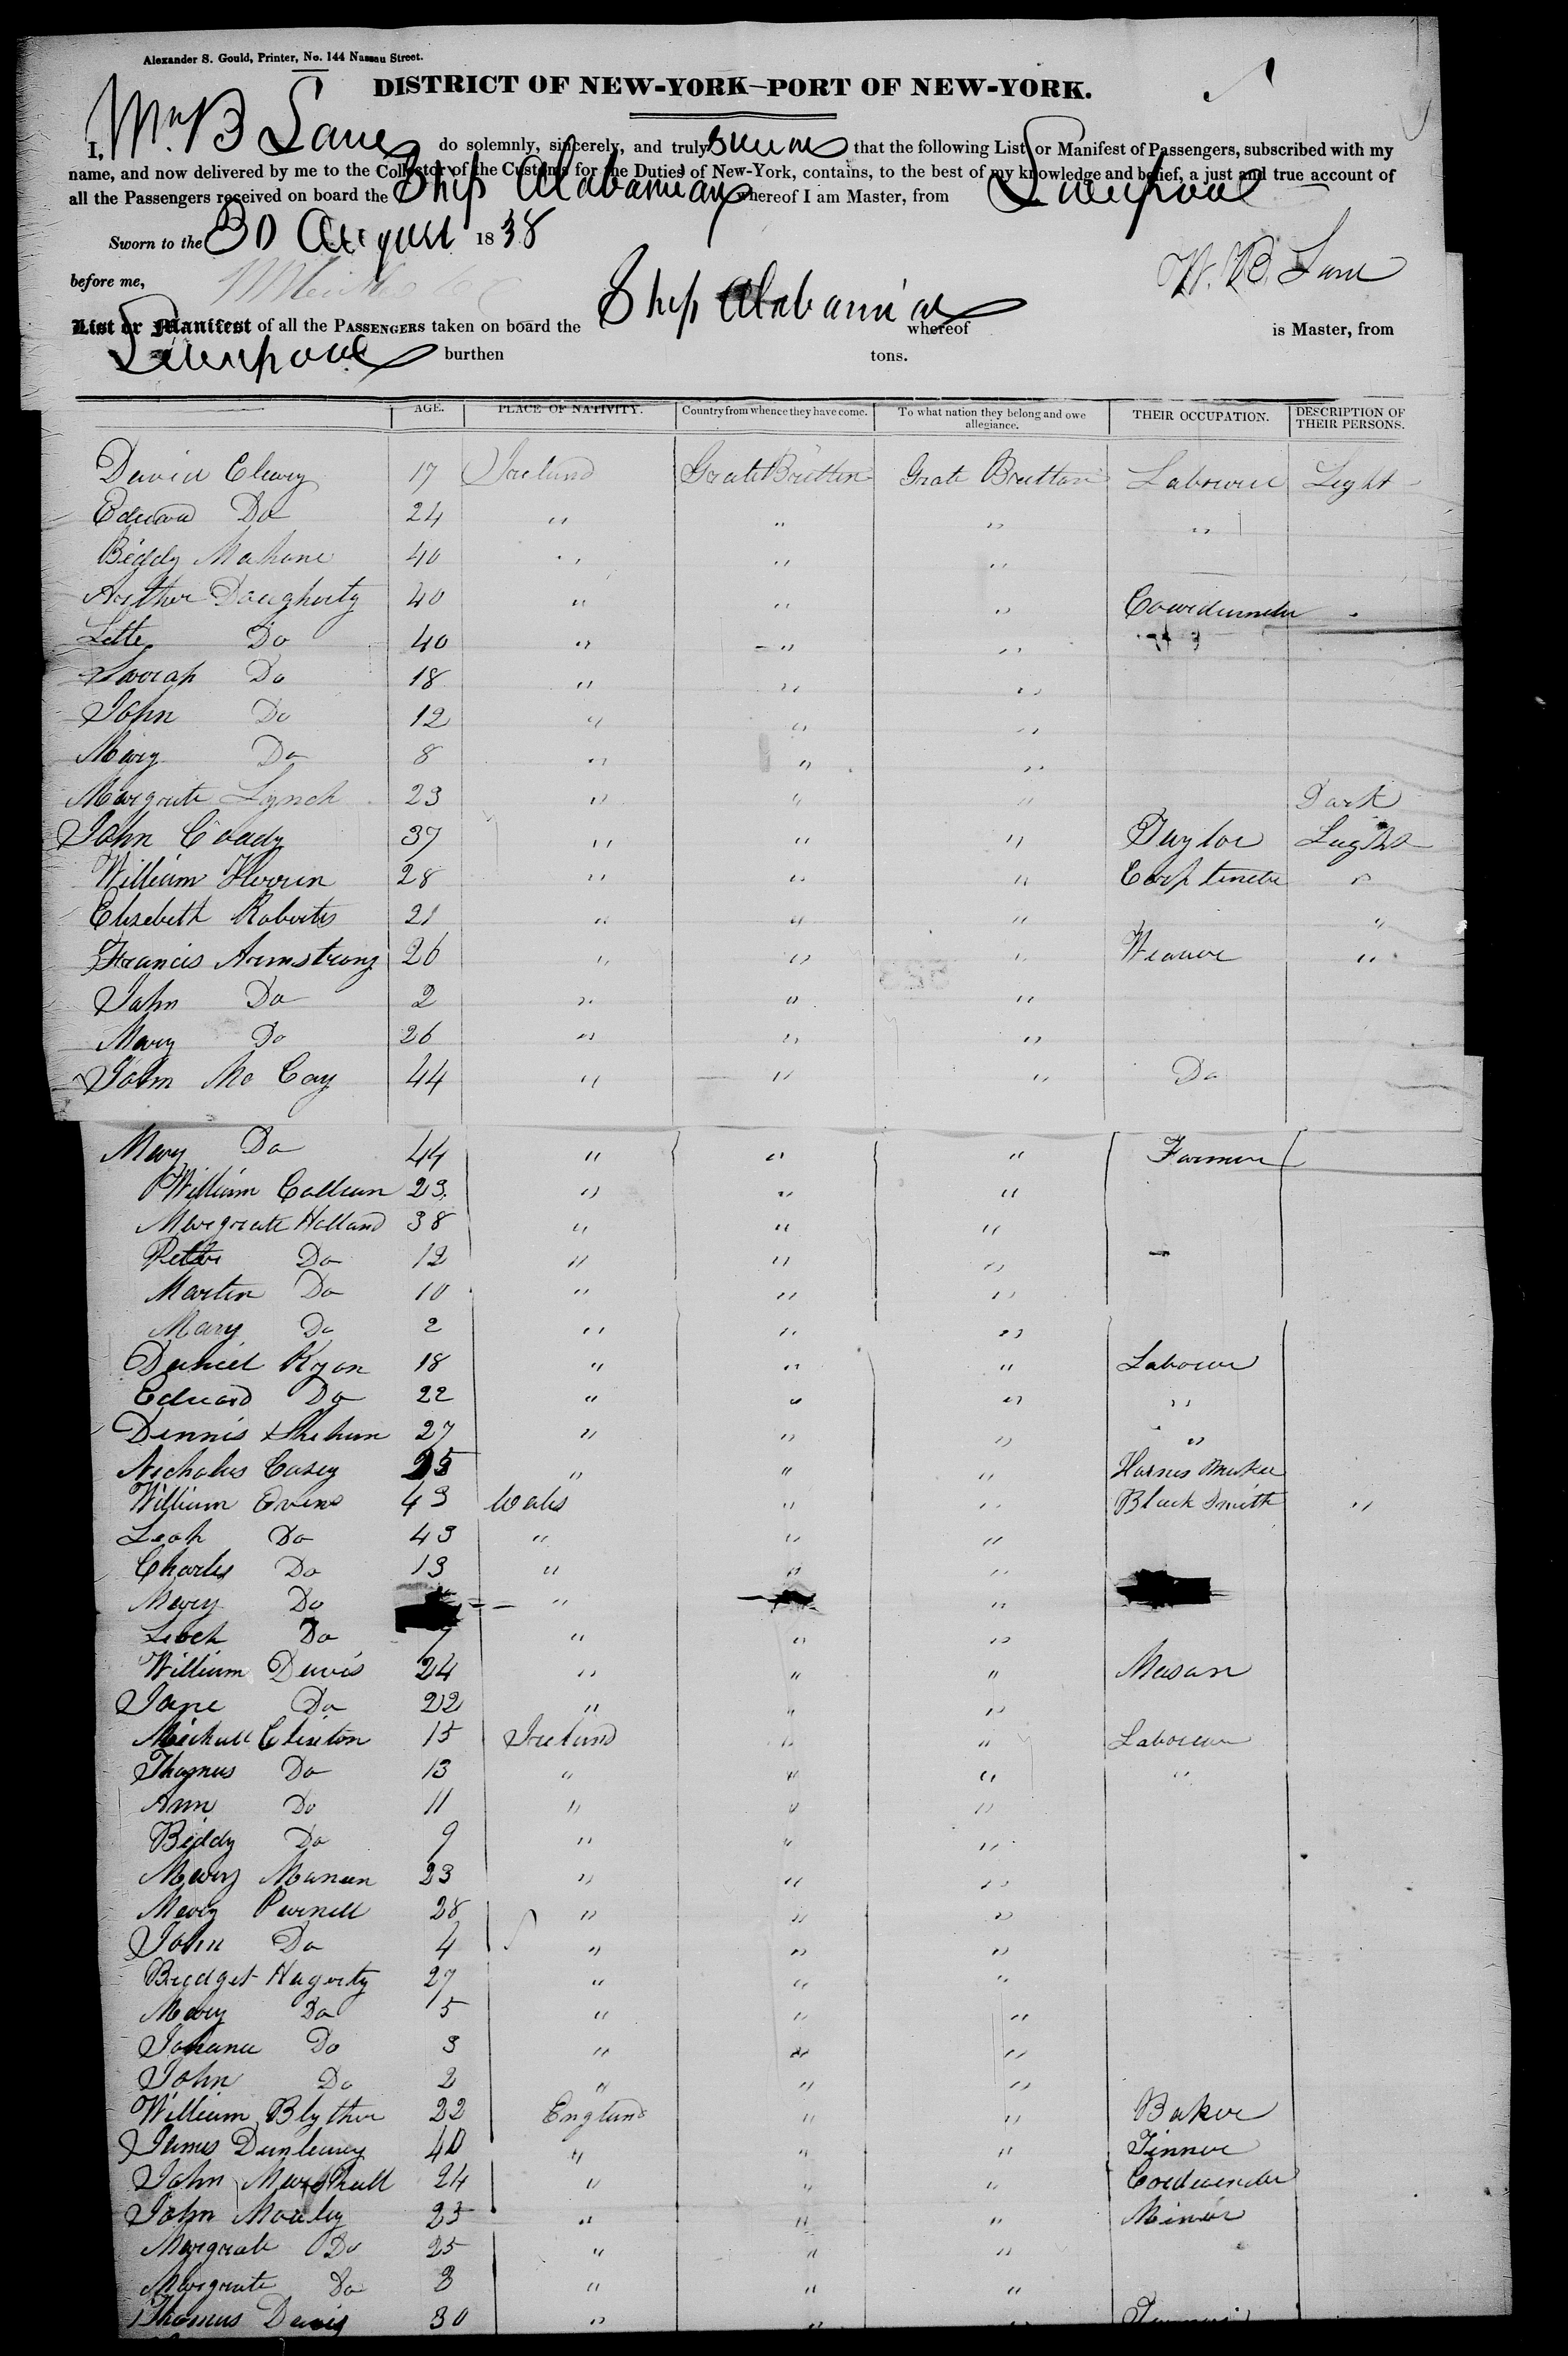 Alexander S. Gould, Printer, No. 144 Nassau Street.
DISTRICT OF NEW-YORK—PORT OF NEW-YORK.
I, Wm B Lane do solemnly, sincerely, and truly swear that the following List or Manifest of Passengers, subscribed with my
name, and now delivered by me to the Collector of the Customs for the Duties of New-York, contains, to the best of my knowledge and belief, a just and true account of
all the Passengers received on board the Ship Alabamian whereof I am Master, from Liverpool
Sworn to the 30 August 1838
W. B. Lane
before me,
List or Manifest of all the PASSENGERS taken on board the Ship Alabamian whereof is Master, from
Liverpool burthen tons.
AGE. PLACE OF NATIVITY. Country from whence they have come. To what nation they belong and owe allegiance. THEIR OCCUPATION. DESCRIPTION OF THEIR PERSONS.
David Cleary 17 Ireland Grate Britten Grate Brittan Labourer Light
Edward Do 24 " " " "
Biddy Mahone 40 " " "
Arther Daugherty 40 " " "
Lette Do 40 " " "
Sarrah Do 18 " " "
John Do 12 " " "
Mary Do 8 " " "
Margrate Lynch 23 " " " Dark
John Coady 37 " " " Taylor Light
William Herren 28 " " " "
Elisebeth Roberts 21 " " " "
Francis Armstrong 26 " " " Weaver "
John Do 2 " " "
Mary Do 26 " " "
John Mc Cay 44 " " " Do
Mary Do 44 " " " Farmer
William 23 " " "
Margrate Holland 38 " " "
Petter Do 12 " " "
Marten Do 10 " " "
Mary Do 2 " " "
Daniel Ryan 18 " " " Labourer
Edward Do 22 " " " "
Dennis Shehan 27 " " " "
Nicholas Casey 25 " " " Harnes Maker
William Evens 43 Wales " " Black Smith "
Leah Do 43 " " "
Charles Do 13 " " "
Mary Do " "
Do 7 " " "
William Davis 24 " " " Mason
Jane Do 22 " " "
Michall Clinton 15 Ireland " " Labourer
Thomas Do 13 " " " "
Ann Do 11 " " "
Biddy Do 9 " " "
Mary 23 " " "
Mary Parnell 28 " " "
John Do 4 " " "
Bridget Hagerty 27 " " "
Mary Do 5 " " "
Johana Do 3 " " "
John Do 2 " " "
William Blyther 22 England " " Baker
James Dunleavy 40 " " " Tinner
John Marshall 24 " " " Cordwender
John 25 " " " Miner
Margrate Do 25 " " "
Margrate Do 3 " " "
Thomas Davis 30 " " "